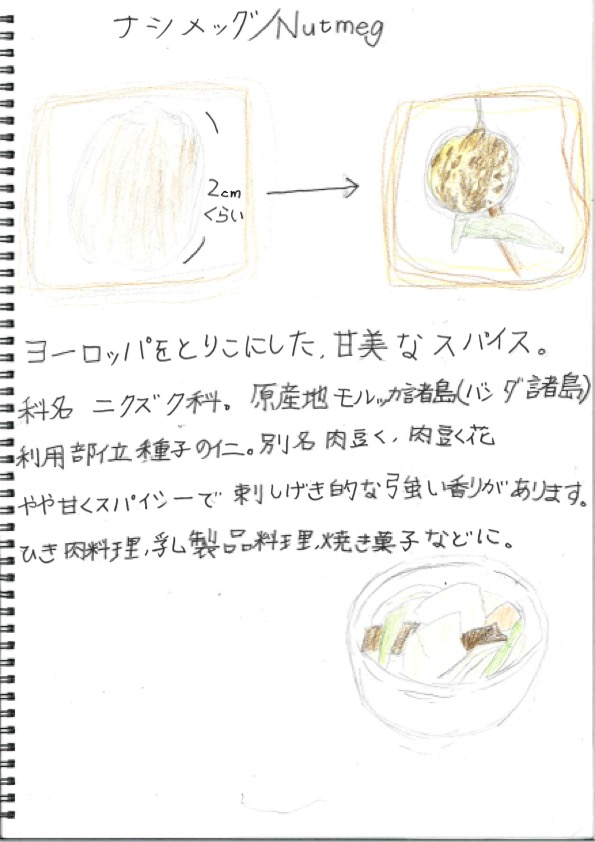 ナシメッグ/Nutmeg
2cm
くらい
ヨーロッパをとりこにした,甘美なスパイス。
科名 ニクズク科。原産地モルッカ諸島(バンダ諸島)
利用部位種子の仁。別名肉豆く,肉豆く花
やや甘くスパイシーで刺しげき的な強い香りがあります。
ひき肉料理,乳し製品料理,焼き菓子などに。